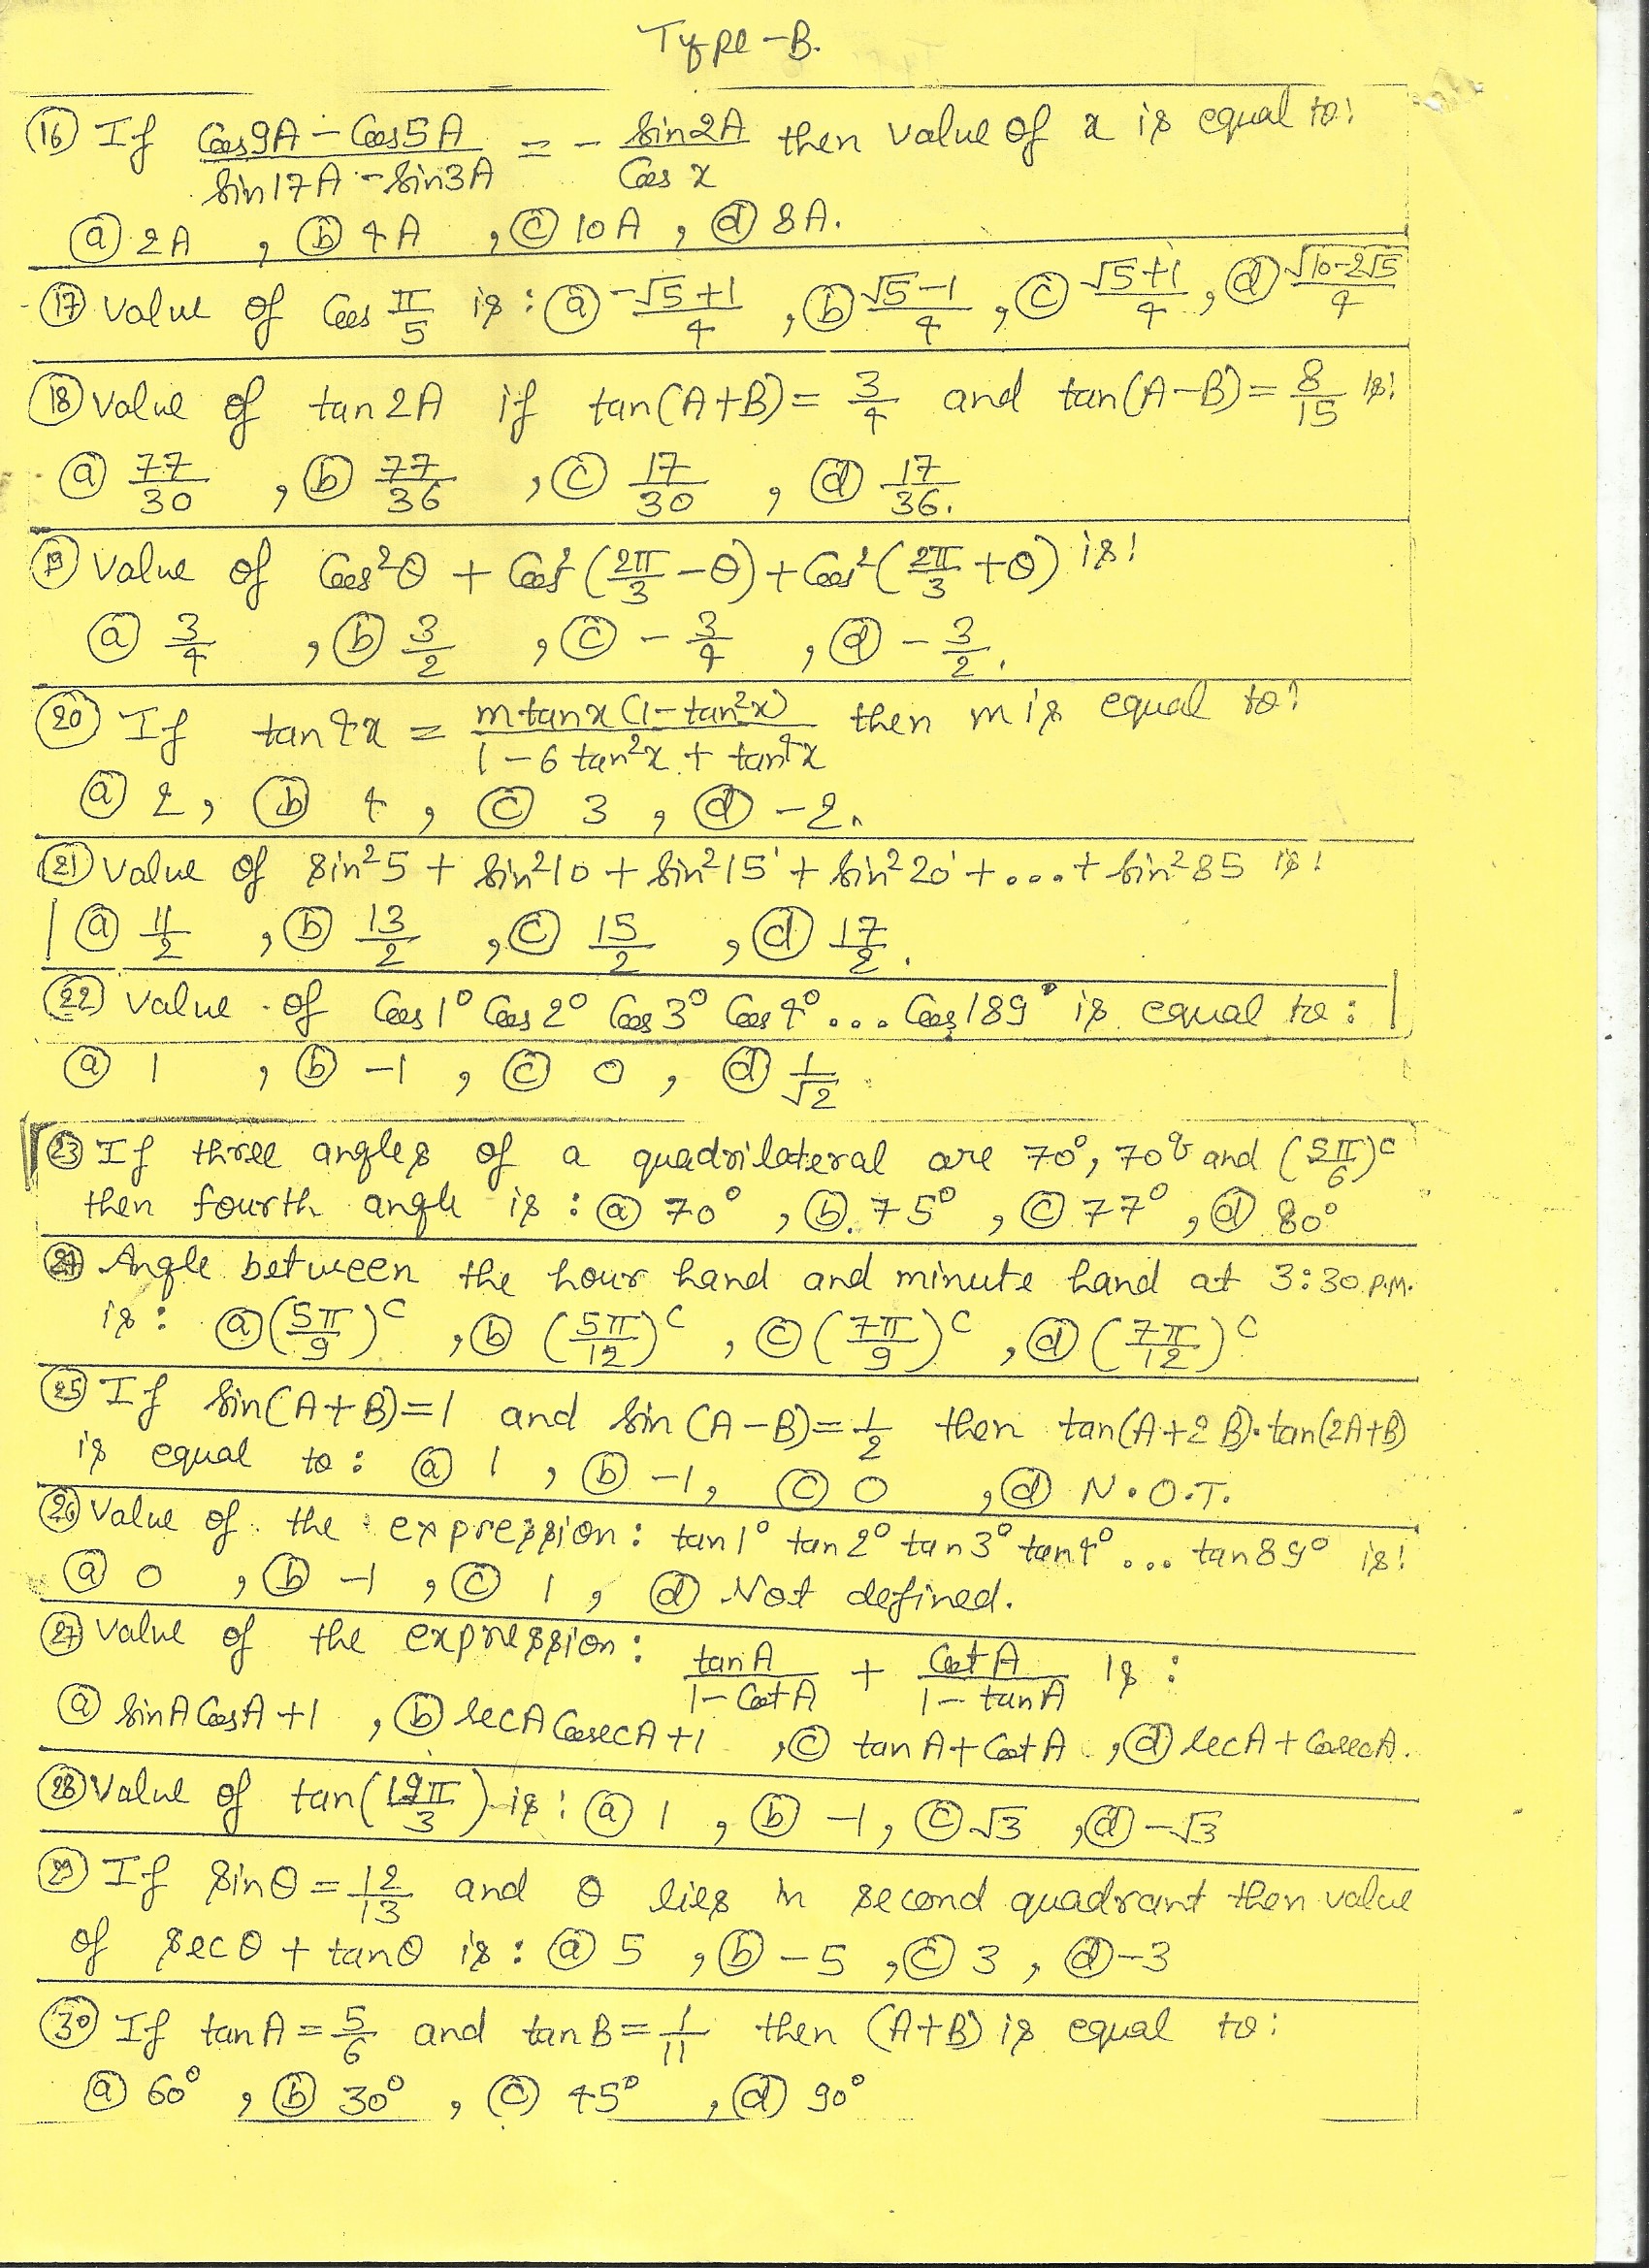 Type-B.
(16) If (Cos9A - Cos5A)/(Sin17A - Sin3A) = - Sin2A/Cos x then value of x is equal to:
(a) 2A , (b) 4A , (c) 10A , (d) 8A.
(17) Value of Cos π/5 is : (a) (-√5+1)/4 , (b) (√5-1)/4 , (c) (√5+1)/4 , (d) √(10-2√5)/4
(18) Value of tan2A if tan(A+B) = 3/4 and tan(A-B) = 8/15 is:
(a) 77/30 , (b) 77/36 , (c) 17/30 , (d) 17/36.
(19) Value of Cos²θ + Cos²(2π/3 - θ) + Cos²(2π/3 + θ) is:
(a) 3/4 , (b) 3/2 , (c) -3/4 , (d) -3/2.
(20) If tan4x = mtanx(1-tan²x)/(1-6tan²x + tan⁴x) then m is equal to:
(a) 2, (b) 4, (c) 3, (d) -2.
(21) Value of Sin²5 + Sin²10 + Sin²15 + Sin²20 + ... + Sin²85 is:
(a) 11/2 , (b) 13/2 , (c) 15/2 , (d) 17/2.
(22) Value of Cos1° Cos2° Cos3° Cos4° ... Cos189° is equal to:
(a) 1 , (b) -1 , (c) 0 , (d) 1/√2
(23) If three angles of a quadrilateral are 70°, 70g and (5π/6)ᶜ
then fourth angle is : (a) 70° , (b) 75° , (c) 77° , (d) 80°
(24) Angle between the hour hand and minute hand at 3:30 P.M.
is: (a) (5π/9)ᶜ , (b) (5π/12)ᶜ , (c) (7π/9)ᶜ , (d) (7π/12)ᶜ
(25) If Sin(A+B)=1 and Sin(A-B)=1/2 then tan(A+2B)·tan(2A+B)
is equal to: (a) 1 , (b) -1, (c) 0 , (d) N.O.T.
(26) Value of the expression: tan1° tan2° tan3° tan4° ... tan89° is:
(a) 0 , (b) -1 , (c) 1 , (d) Not defined.
(27) Value of the expression: tanA/(1-CotA) + CotA/(1-tanA) is :
(a) SinACosA+1 , (b) SecACosecA+1 , (c) tanA+CotA , (d) SecA+CosecA.
(28) Value of tan(19π/3) is: (a) 1 , (b) -1, (c) √3 , (d) -√3
(29) If Sinθ = 12/13 and θ lies in second quadrant then value
of Secθ + tanθ is: (a) 5 , (b) -5 , (c) 3 , (d) -3
(30) If tanA = 5/6 and tanB = 1/11 then (A+B) is equal to:
(a) 60° , (b) 30° , (c) 45° , (d) 90°